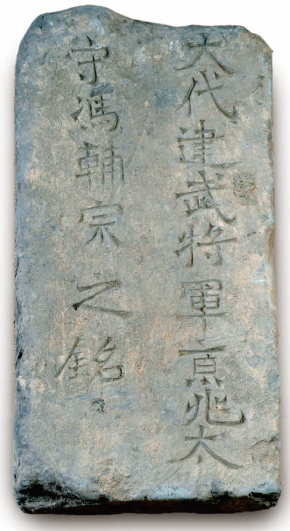 大代建武将軍京兆太
守馮輔宗之銘